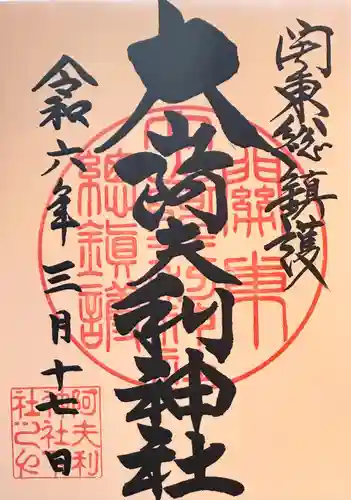 関東総鎮護
大山阿夫利神社
令和六年三月十七日
關東
總鎮護
阿夫利
神社
社之印